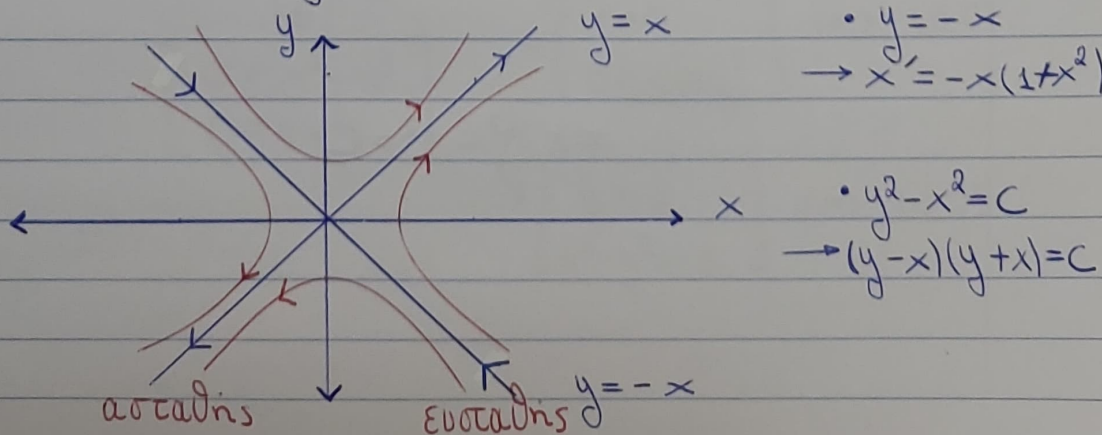 y
y = x
x
ασταθής
ευσταθής
y = - x
• y = - x
→ x' = - x (1+x²)
• y² - x² = c
→ (y - x) (y + x) = c